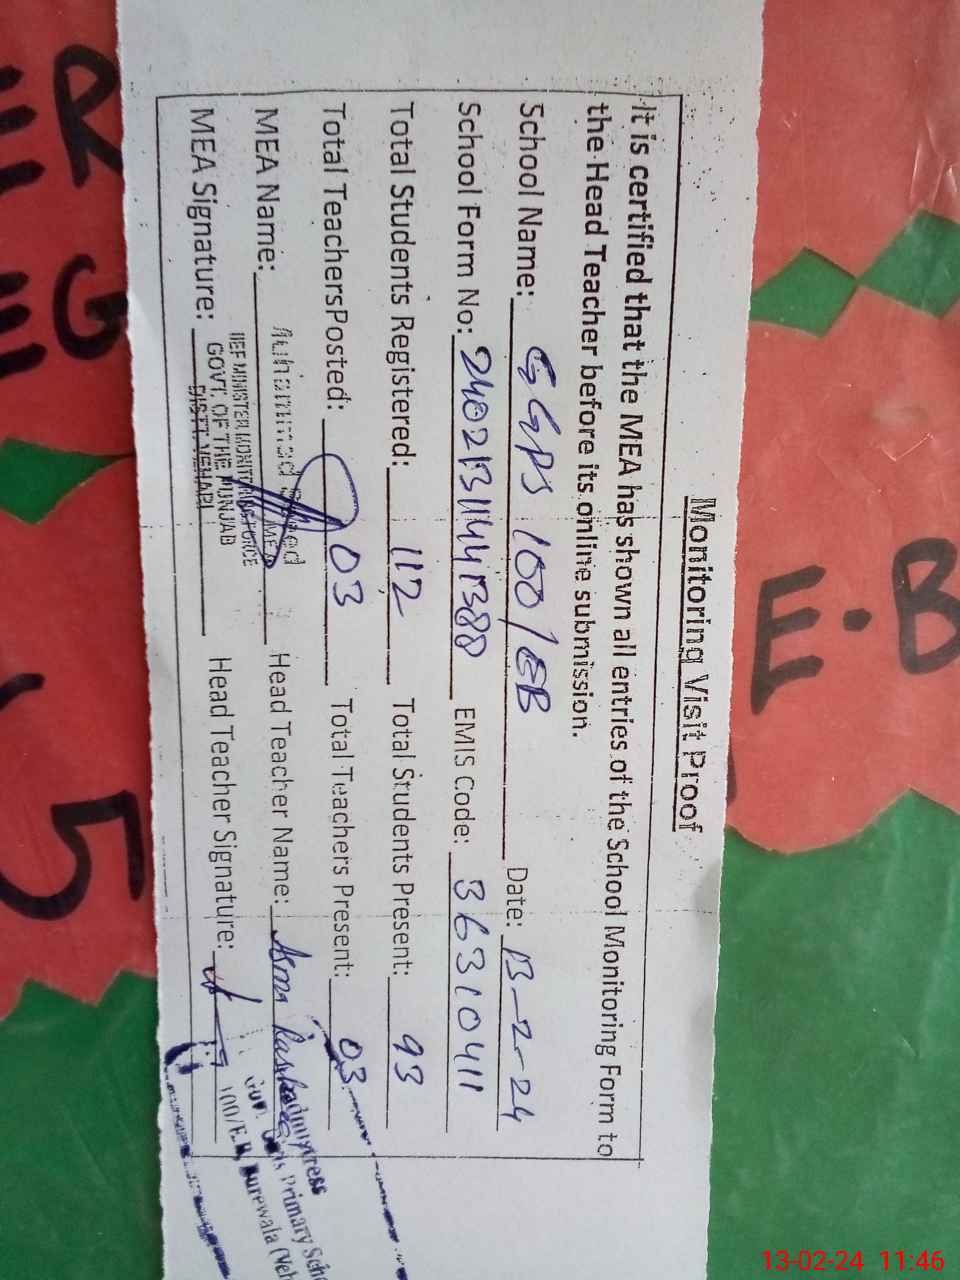 Monitoring Visit Proof
It is certified that the MEA has shown all entries of the School Monitoring Form to
the Head Teacher before its online submission.
School Name: GGPS 100/EB Date: 13-2-24
School Form No: EMIS Code: 36310411
Total Students Registered: 112 Total Students Present: 93
Total TeachersPosted: 03 Total Teachers Present: 03
MEA Name: Head Teacher Name: Asma
MEA Signature: Head Teacher Signature:
MINISTER MONITORING FORCE
GOVT. OF THE PUNJAB
DISTT. VEHARI
Girls Primary
100/E.B, Burewala
E.B
13-02-24 11:46